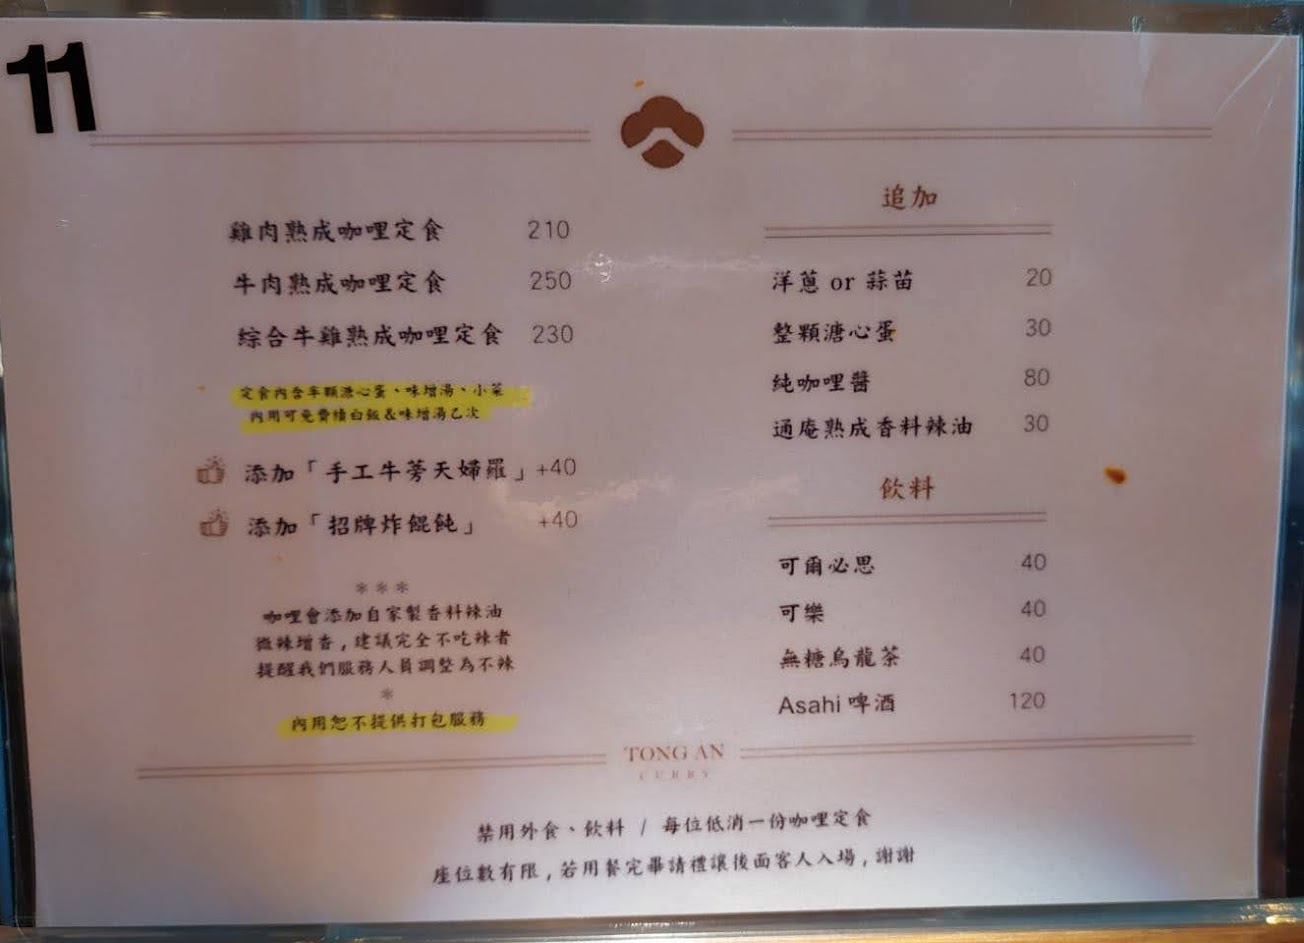 11
雞肉熟成咖哩定食 210
牛肉熟成咖哩定食 250
綜合牛雞熟成咖哩定食 230
定食內含半顆溏心蛋、味增湯、小菜
內用可免費續白飯&味增湯乙次
添加「手工牛蒡天婦羅」+40
添加「招牌炸餛飩」 +40
***
咖哩會添加自家製香料辣油
微辣增香,建議完全不吃辣者
提醒我們服務人員調整為不辣
*
內用恕不提供打包服務
追加
洋蔥 or 蒜苗 20
整顆溏心蛋 30
純咖哩醬 80
通庵熟成香料辣油 30
飲料
可爾必思 40
可樂 40
無糖烏龍茶 40
Asahi 啤酒 120
TONG AN
CURRY
禁用外食、飲料 / 每位低消一份咖哩定食
座位數有限,若用餐完畢請禮讓後面客人入場,謝謝